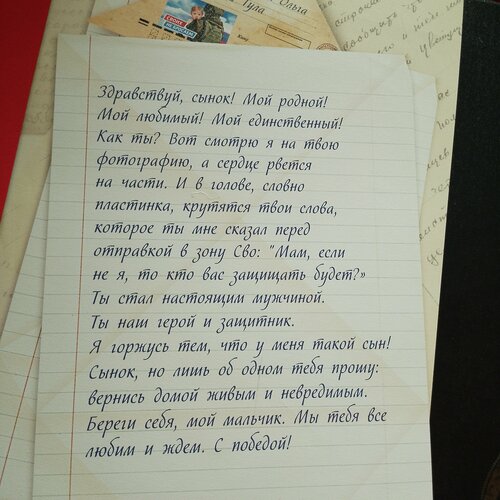 Ольга
Тула
Кому
Здравствуй, сынок! Мой родной!
Мой любимый! Мой единственный!
Как ты? Вот смотрю я на твою
фотографию, а сердце рвется
на части. И в голове, словно
пластинка, крутятся твои слова,
которое ты мне сказал перед
отправкой в зону Сво: "Мам, если
не я, то кто вас защищать будет?»
Ты стал настоящим мужчиной.
Ты наш герой и защитник.
Я горжусь тем, что у меня такой сын!
Сынок, но лишь об одном тебя прошу:
вернись домой живым и невредимым.
Береги себя, мой мальчик. Мы тебя все
любим и ждем. С победой!